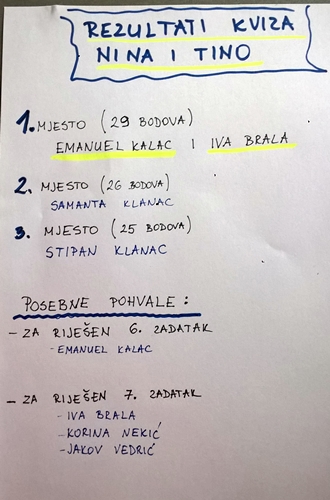 REZULTATI KVIZA
NINA I TINO
1. MJESTO (29 BODOVA)
EMANUEL KALAC I IVA BRALA
2. MJESTO (26 BODOVA)
SAMANTA KLANAC
3. MJESTO (25 BODOVA)
STIPAN KLANAC
POSEBNE POHVALE:
- ZA RIJEŠEN 6. ZADATAK
- EMANUEL KALAC
- ZA RIJEŠEN 7. ZADATAK
- IVA BRALA
- KORINA NEKIĆ
- JAKOV VEDRIĆ